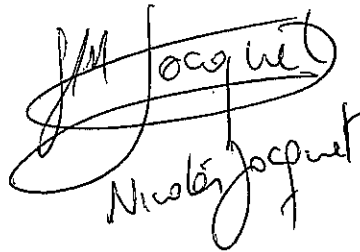 JM Jocquet
Nicolas Jocquet